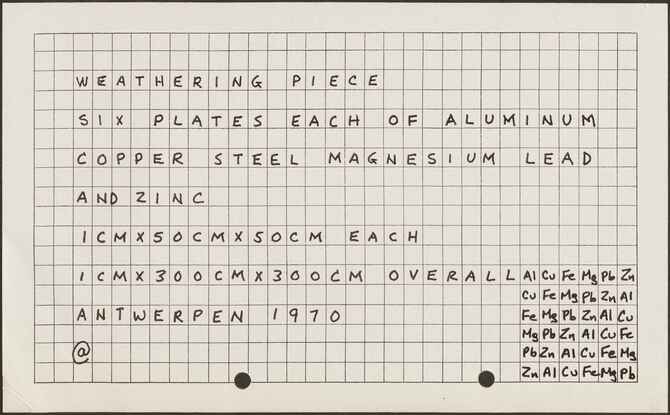 WEATHERING PIECE
SIX PLATES EACH OF ALUMINUM
COPPER STEEL MAGNESIUM LEAD
AND ZINC
1CMX50CMX50CM EACH
1CMX300CMX300CM OVERALL Al Cu Fe Mg Pb Zn
Cu Fe Mg Pb Zn Al
ANTWERPEN 1970 Fe Mg Pb Zn Al Cu
Mg Pb Zn Al Cu Fe
@ Pb Zn Al Cu Fe Mg
Zn Al Cu Fe Mg Pb